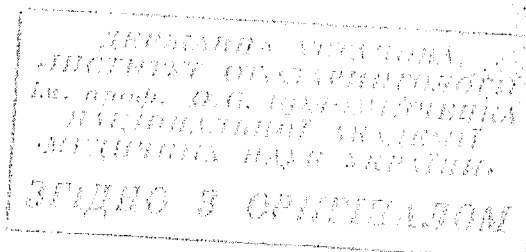 ДЕРЖАВНА УСТАНОВА
"ІНСТИТУТ ОТОЛАРИНГОЛОГІЇ
ім. проф. О.С.
НАЦІОНАЛЬНОЇ АКАДЕМІЇ
МЕДИЧНИХ НАУК УКРАЇНИ"
ЗГІДНО З ОРИГІНАЛОМ